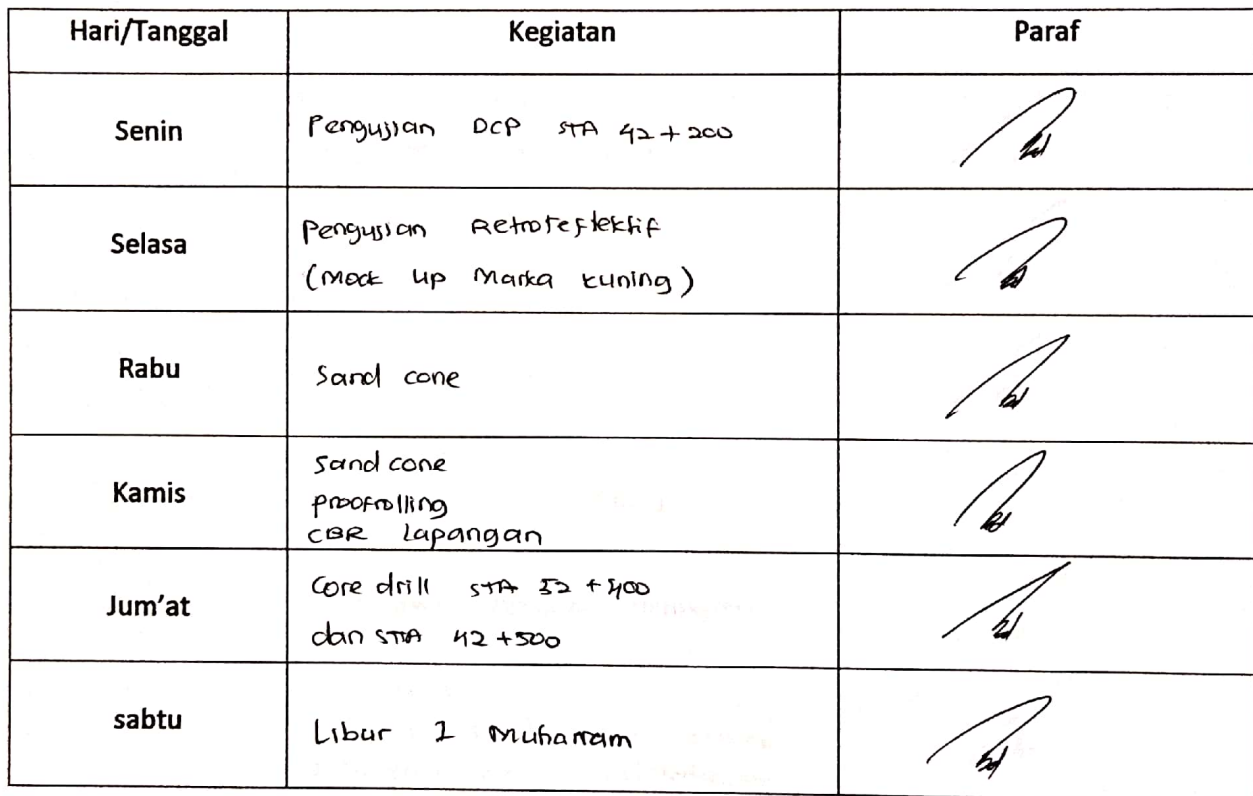 Hari/Tanggal Kegiatan Paraf
Senin Pengujian DCP STA 42+200
Selasa Pengujian Retroreflektif
(Mock up Marka kuning)
Rabu Sand cone
Kamis Sand cone
proofrolling
CBR Lapangan
Jum'at Core drill STA +400
dan STA 42+500
sabtu Libur 1 Muharram